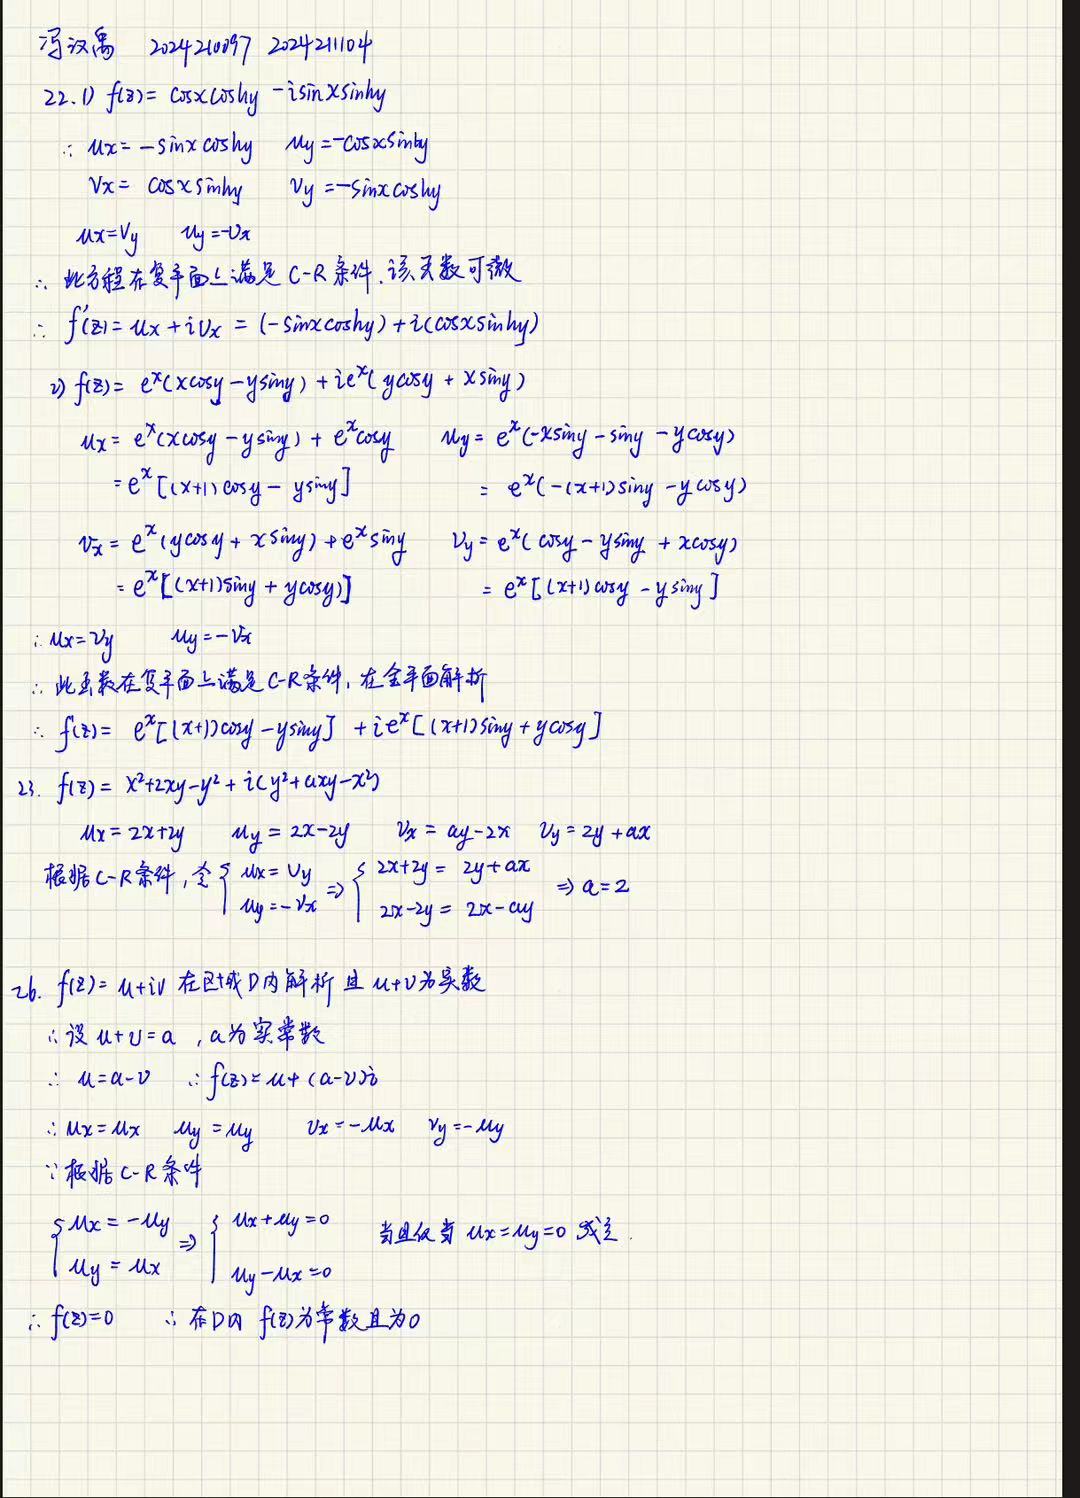 冯汉禹 2024210097 2024211104
22.1) f(z)= cosxcoshy -isinxsinhy
∴ ux= -sinx coshy uy=-cosxsinhy
vx= cosxsinhy vy=-sinxcoshy
ux=vy uy=-vx
∴ 此方程在复平面上满足C-R条件,该函数可微
∴ f'(z)= ux+ivx = (-sinxcoshy)+i(cosxsinhy)
2) f(z)= eˣ(xcosy-ysiny)+ieˣ(ycosy+xsiny)
ux= eˣ(xcosy-ysiny)+eˣcosy uy= eˣ(-xsiny-siny-ycosy)
=eˣ[(x+1)cosy-ysiny] = eˣ(-(x+1)siny-ycosy)
vx= eˣ(ycosy+xsiny)+eˣsiny vy=eˣ(cosy-ysiny+xcosy)
=eˣ[(x+1)siny+ycosy)] = eˣ[(x+1)cosy-ysiny]
∴ ux=vy uy=-vx
∴ 此函数在复平面上满足C-R条件,在全平面解析
∴ f'(z)= eˣ[(x+1)cosy-ysiny]+ieˣ[(x+1)siny+ycosy]
23. f(z)= x²+2xy-y²+i(y²+axy-x²)
ux=2x+2y uy=2x-2y vx=ay-2x vy=2y+ax
根据C-R条件,令 { ux=vy ⇒ { 2x+2y= 2y+ax ⇒ a=2
uy=-vx 2x-2y= 2x-ay
26. f(z)= u+iv 在区域D内解析且 u+v为实数
∴设 u+v=a ,a为实常数
∴ u=a-v ∴ f(z)=u+(a-v)i
∴ ux=ux uy=uy vx=-ux vy=-uy
∵根据C-R条件
{ ux=-uy ⇒ { ux+uy=0 当且仅当 ux=uy=0 成立.
uy=ux uy-ux=0
∴ f'(z)=0 ∴ 在D内 f(z)为常数且为0